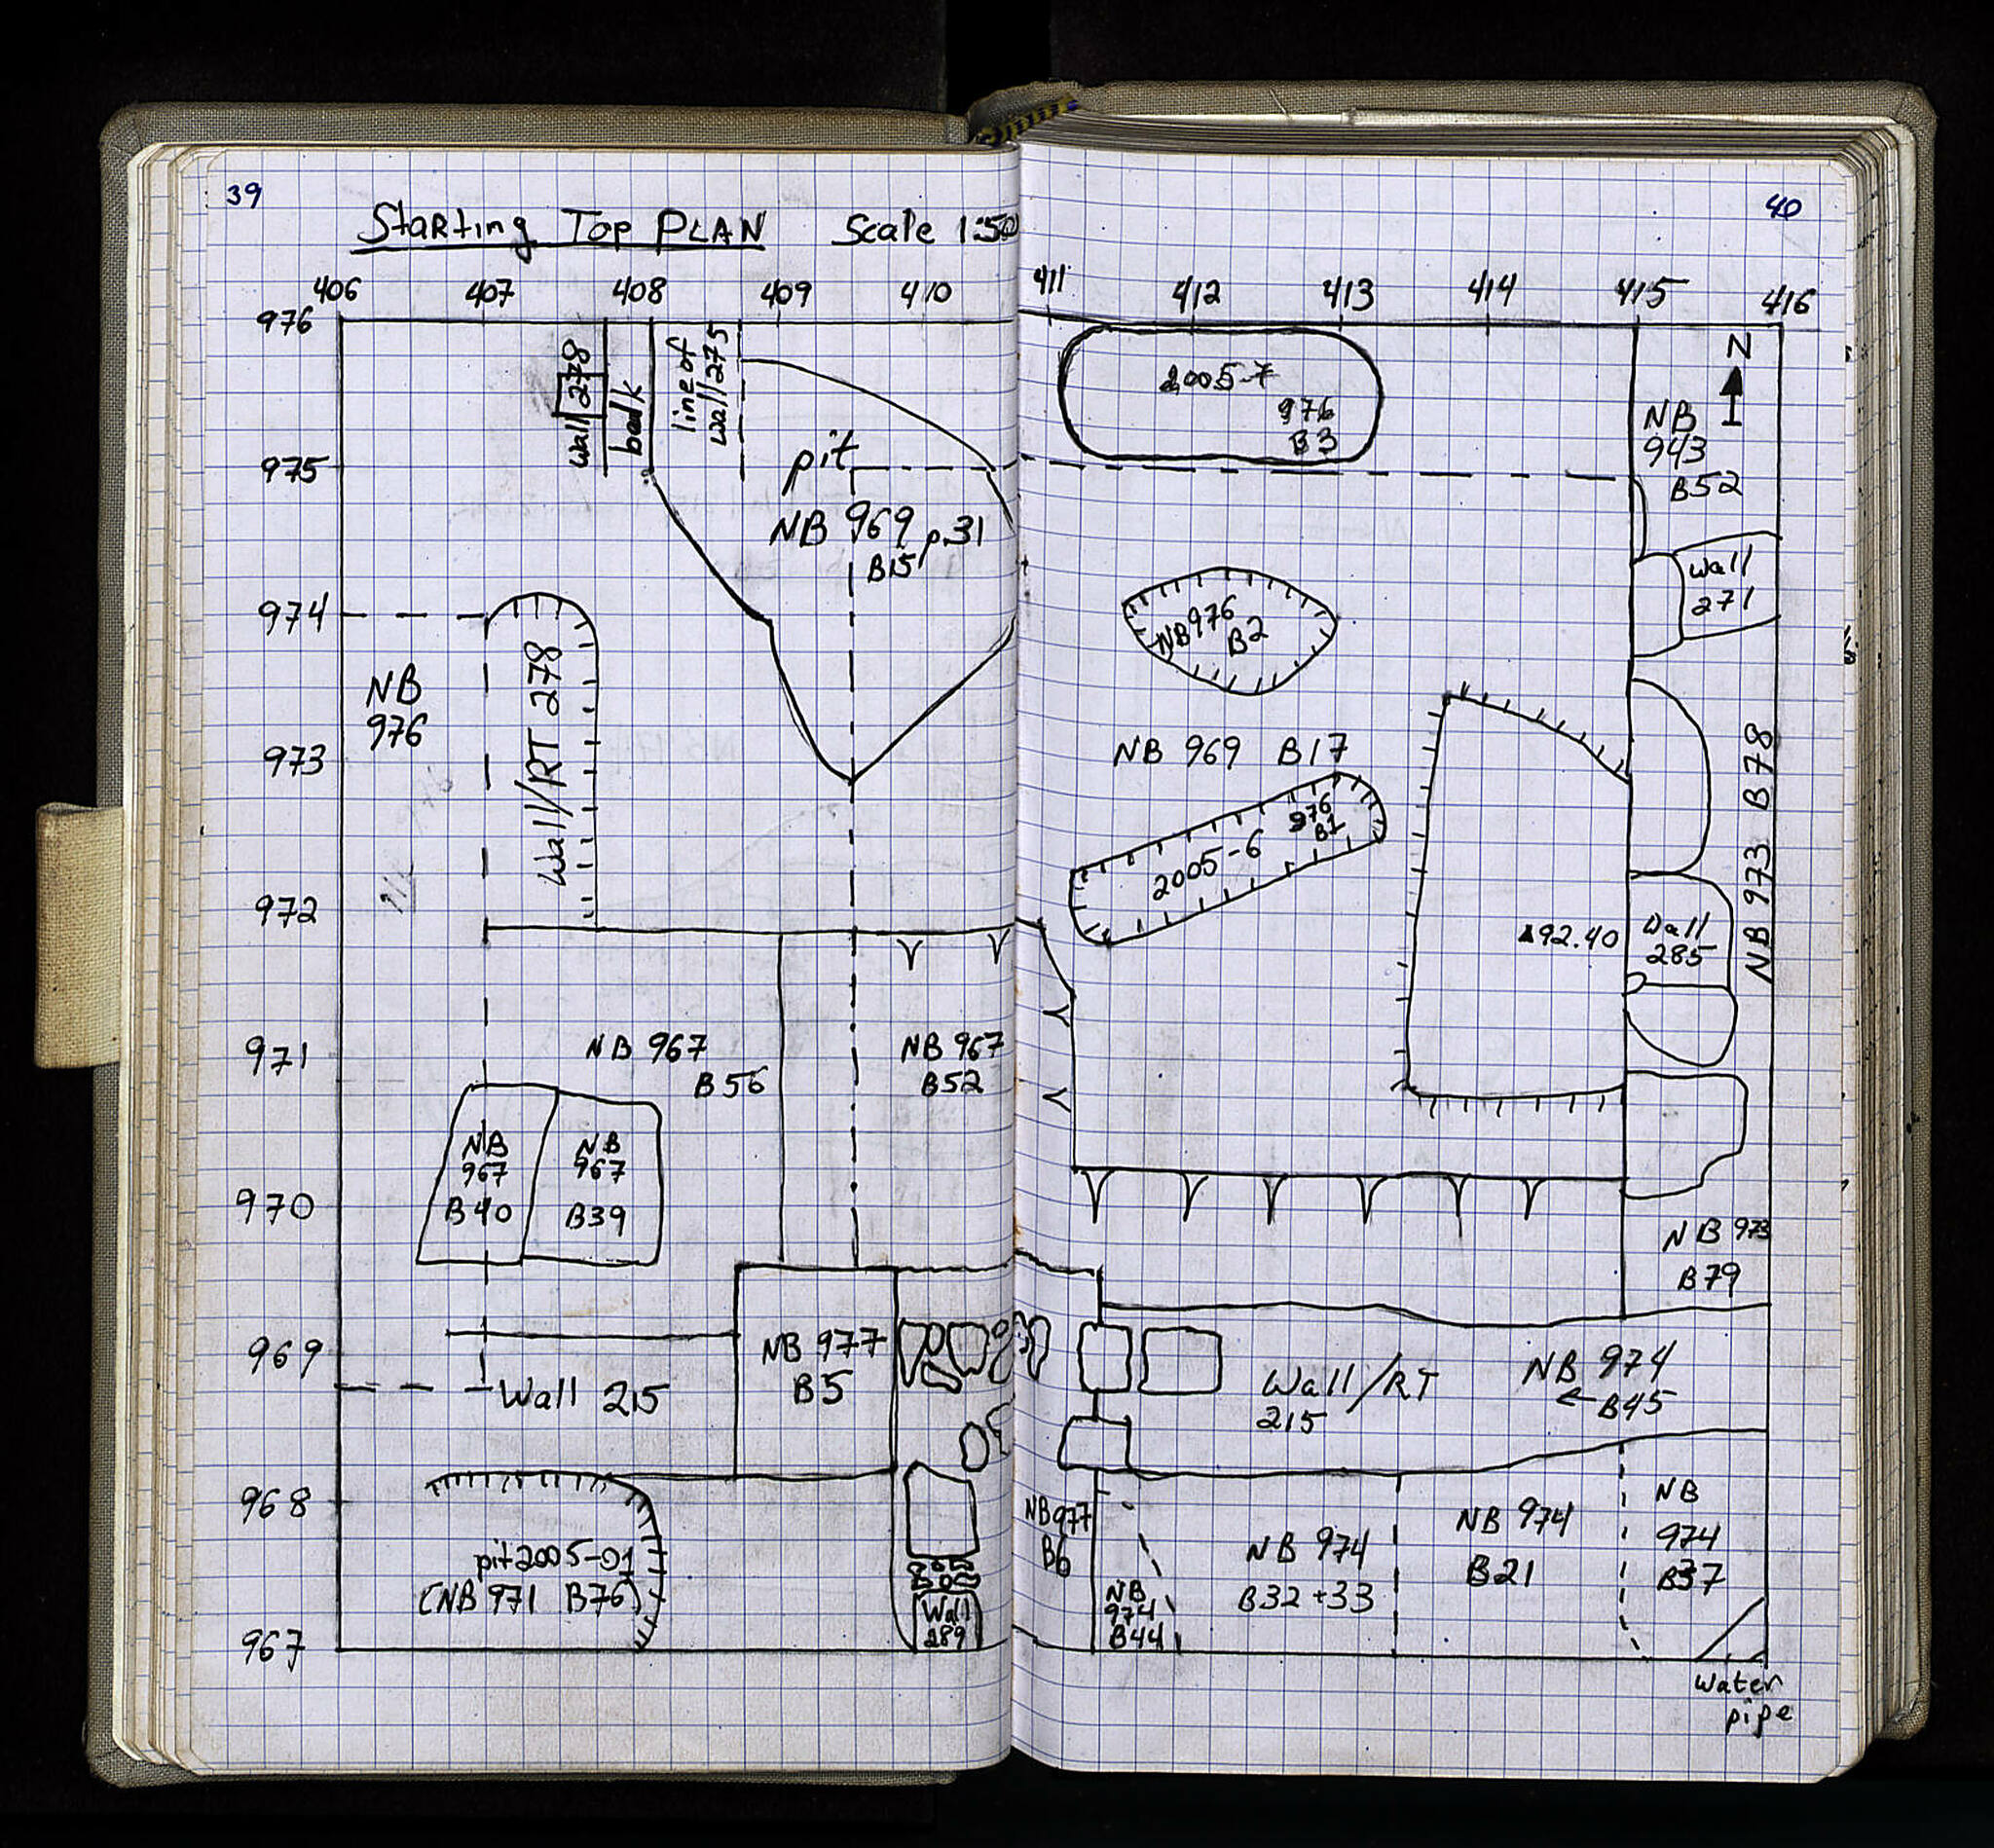 39
40
Starting Top PLAN Scale 1:50
406 407 408 409 410 411 412 413 414 415 416
976
975
974
973
972
971
970
969
968
967
Wall 278
balk
line of
wall 275
pit
NB 969 p.31
B15
NB
976
Wall/RT 278
NB 967
B56
NB 967
B52
NB
967
B40
NB
967
B39
Wall 215
NB 977
B5
pit 2005-01
(NB 971 B76)
Wall
289
2005-7
976
B3
N
NB
943
B52
Wall
271
NB 976
B2
NB 969 B17
2005-6
976
B1
92.40
Wall
285
NB 973 B78
NB 973
B79
Wall/RT
215
NB 974
←B45
NB 977
B6
NB
974
B44
NB 974
B32+33
NB 974
B21
NB
974
B37
Water
pipe